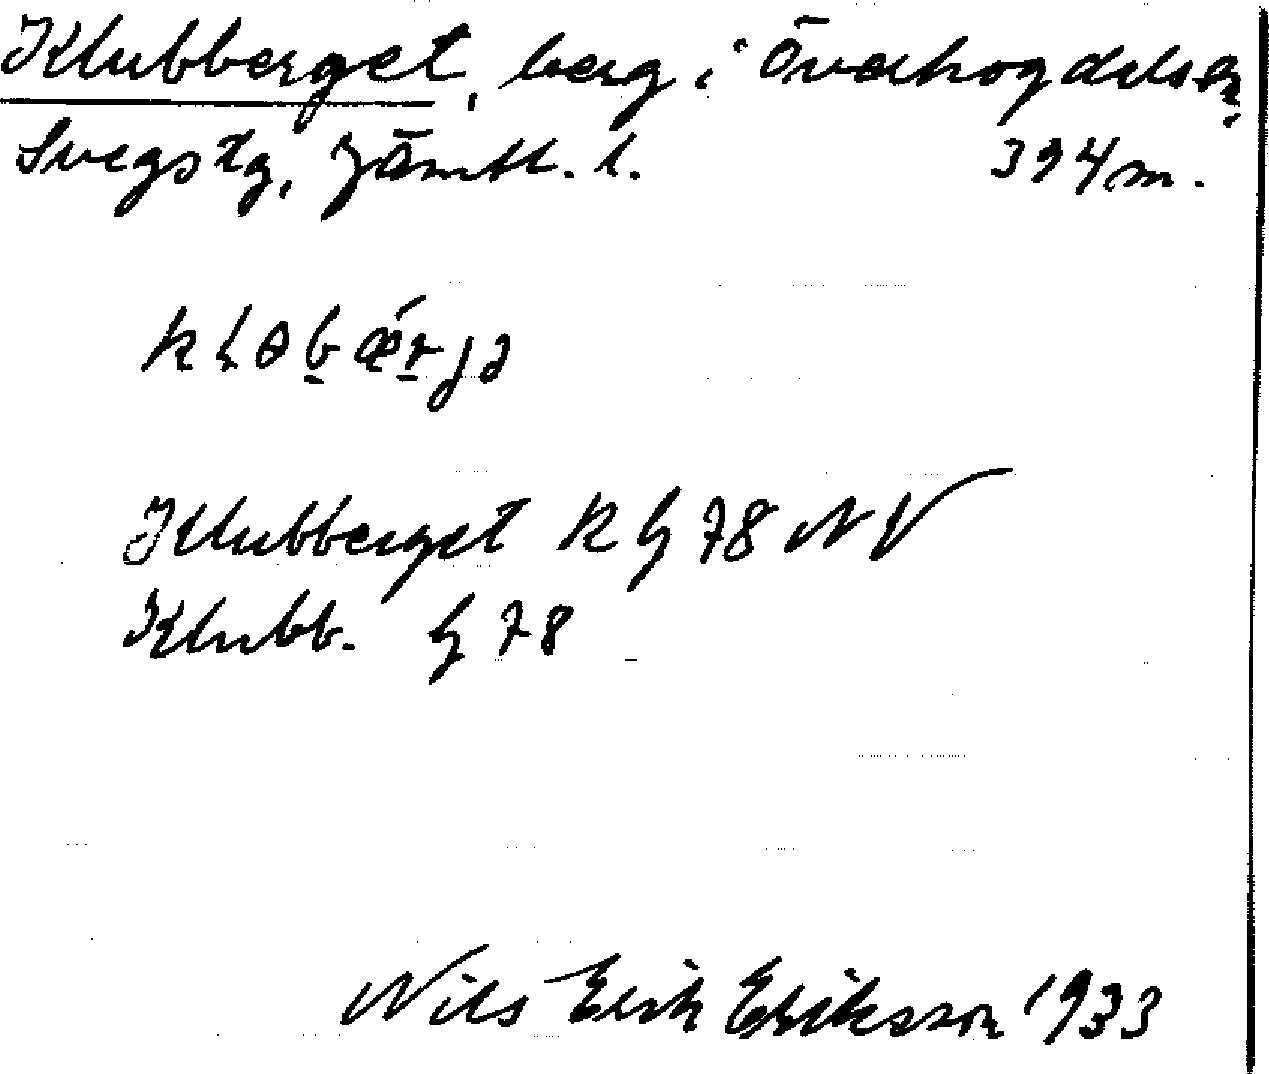 Klubberget, berg i Överhogdals sn,
Svegs tg, Jämtl. l. 394 m.
Klubberget K G 78 NV
Klubb. G 78
Nils Erik Eriksson 1933